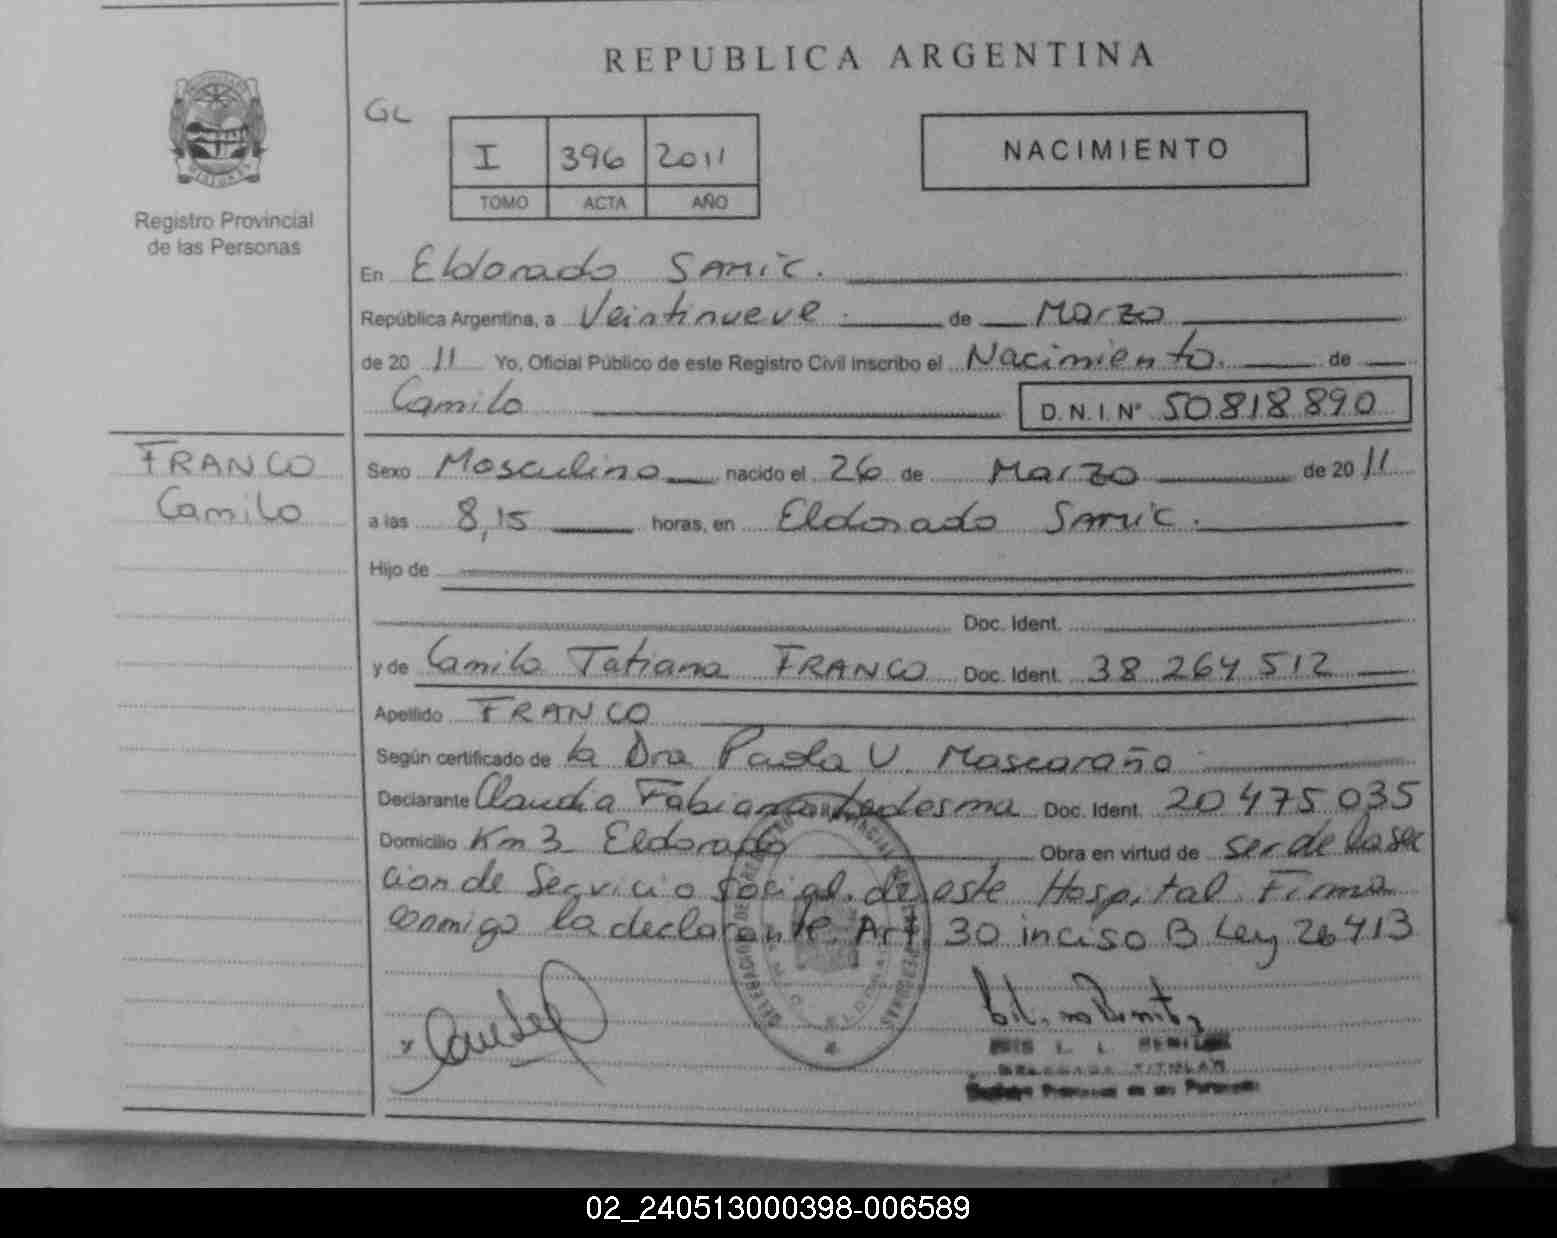 REPUBLICA ARGENTINA
GL
I 396 2011
TOMO ACTA AÑO
NACIMIENTO
Registro Provincial
de las Personas
En Eldorado SAMIC.
República Argentina, a Veintinueve de Marzo
de 20 11 Yo, Oficial Público de este Registro Civil inscribo el Nacimiento de
Camilo D.N.I. Nº 50.818.890
FRANCO
Camilo
Sexo Masculino nacido el 26 de Marzo de 20 11
a las 8,15 horas, en Eldorado SAMIC.
Hijo de
Doc. Ident.
y de Camila Tatiana FRANCO Doc. Ident. 38 264 512
Apellido FRANCO
Según certificado de la Dra Paola V. Mascaraño
Declarante Claudia Fabiana Ledesma Doc. Ident. 20 475 035
Domicilio Km 3 Eldorado Obra en virtud de ser de la sec
cion de Servicio Social de este Hospital Firma
conmigo la declarante. Art 30 inciso B Ley 26413
DELEGADA TITULAR
Registro Provincial de las Personas
02_240513000398-006589